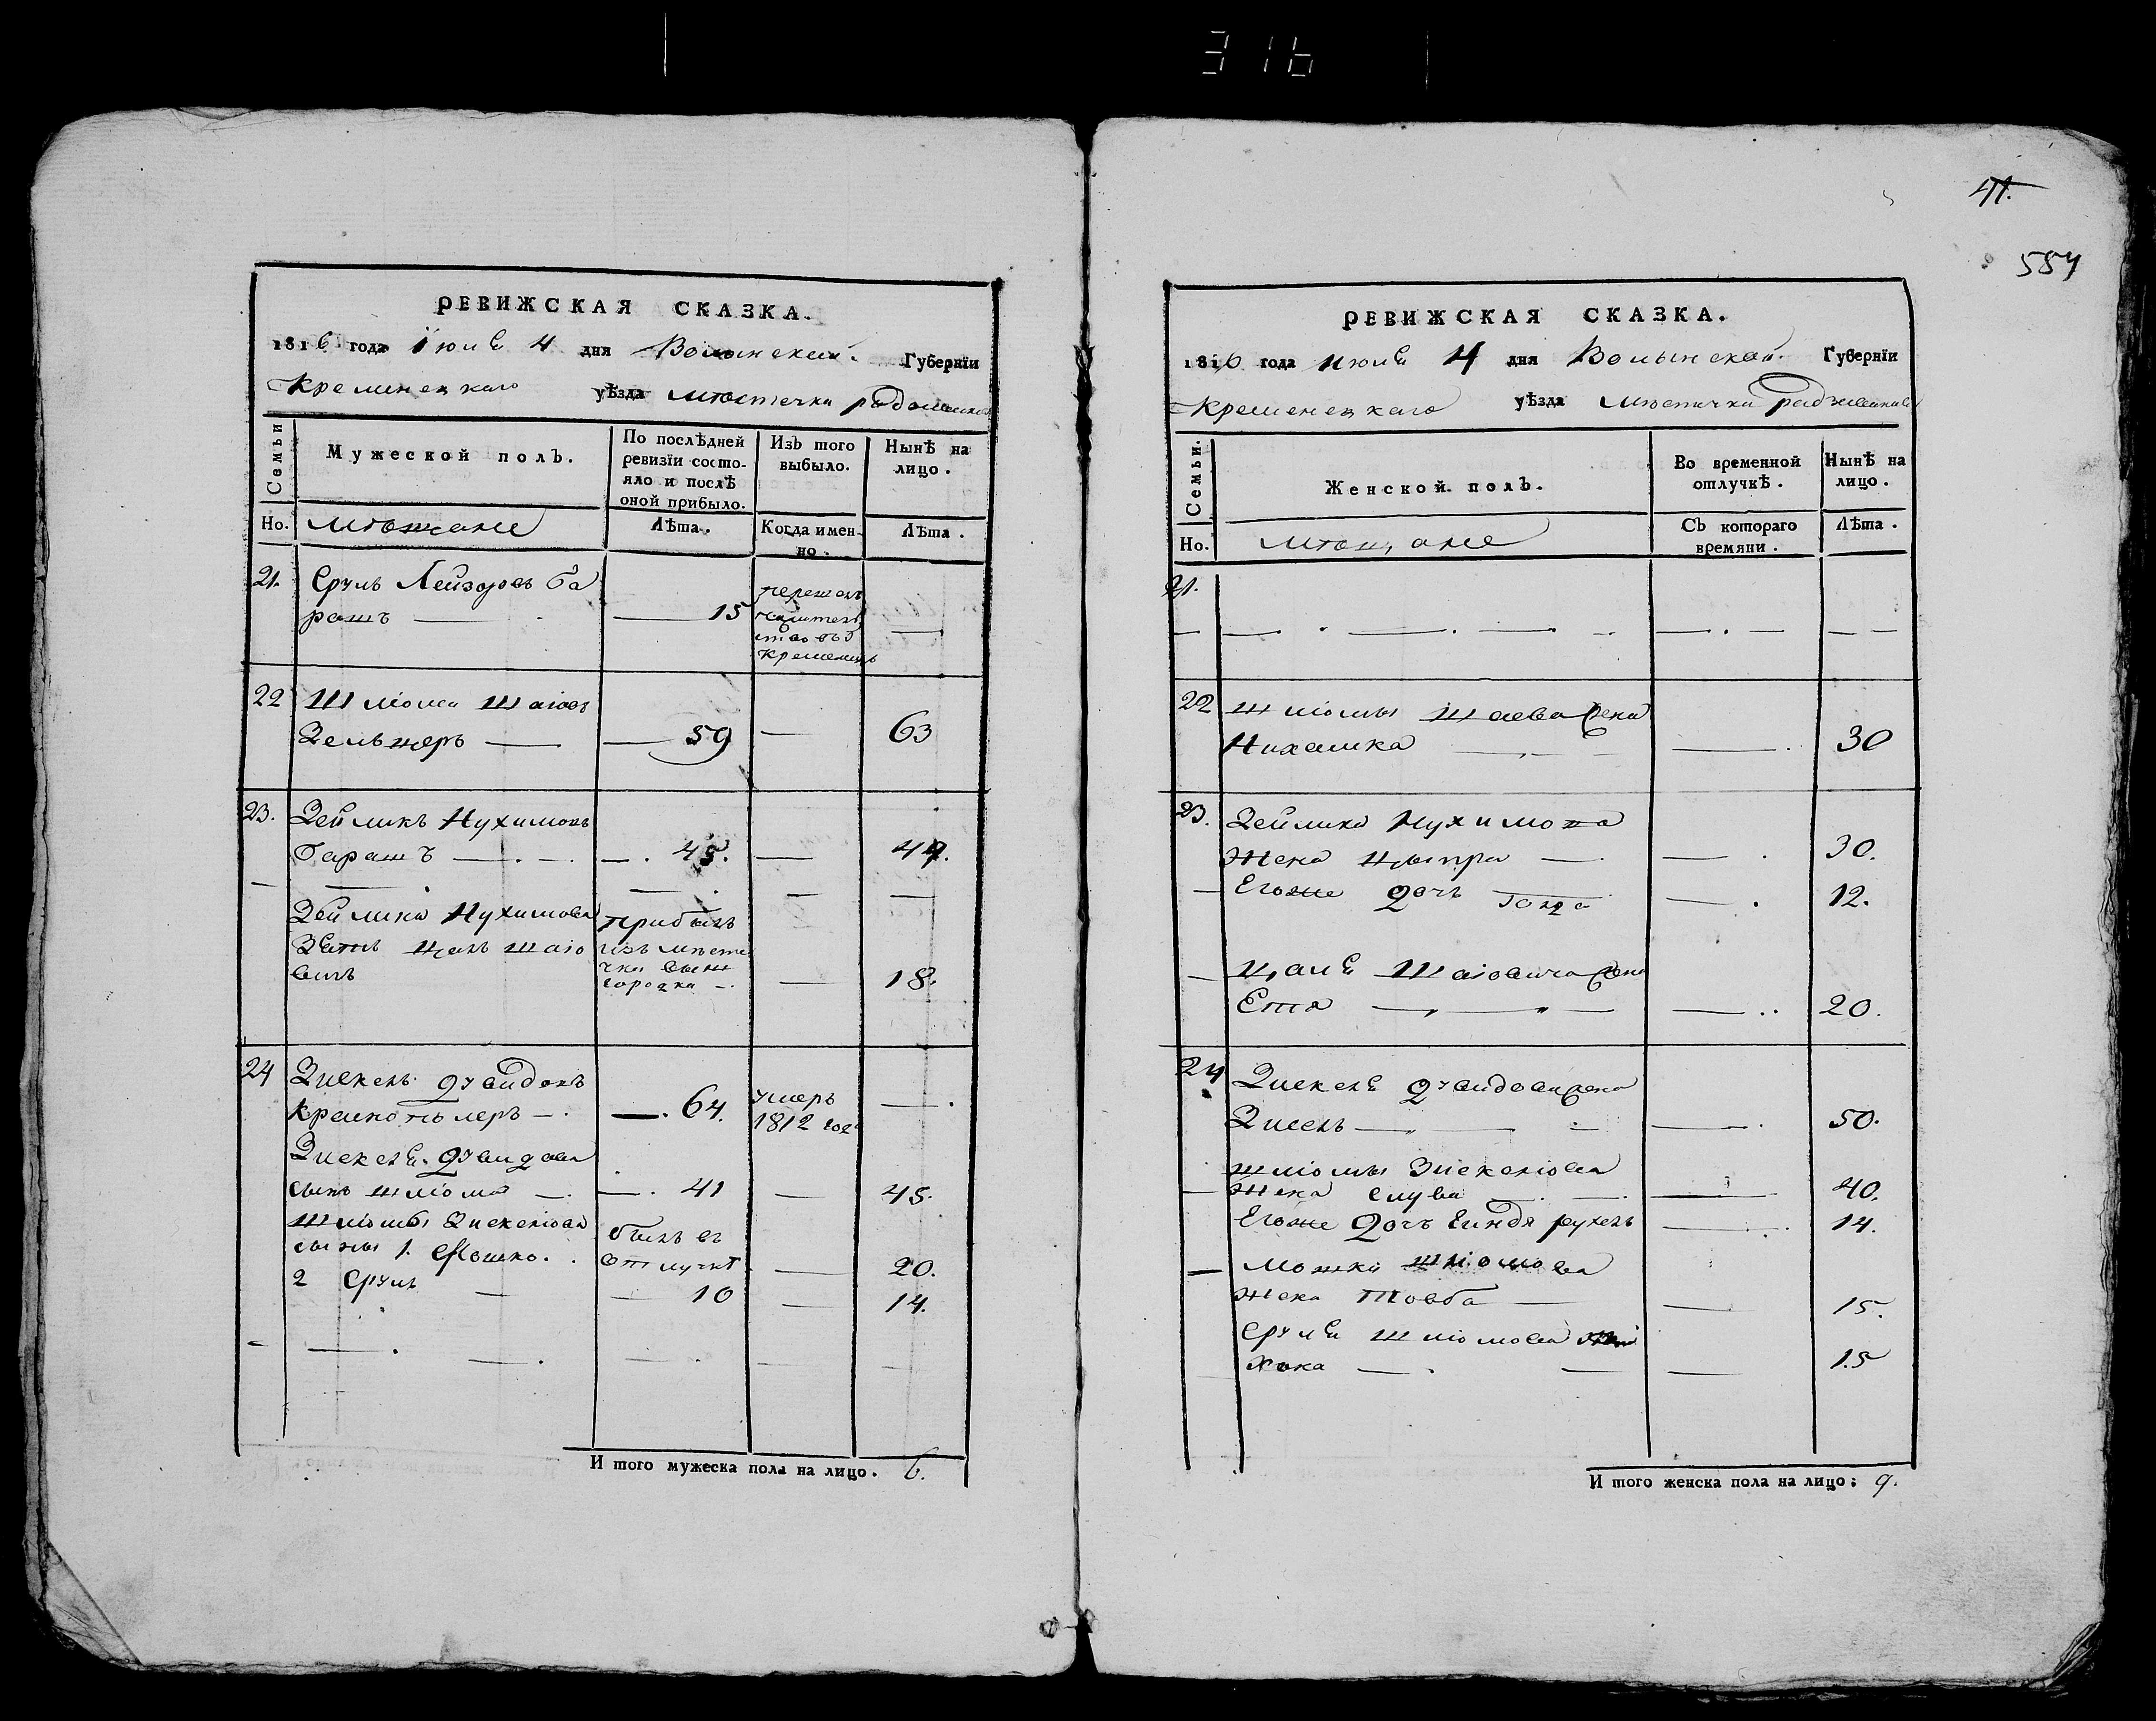 316
41.
557
РЕВИЖСКАЯ СКАЗКА.
1816 года Iюля 4 дня Волынской Губернїи
Кременецкаго уѣзда мѣстечка радзивилова
Семьи
Мужеской полъ.
По послѣдней ревизїи состо-
яло и послѣ
оной прибыло.
Изъ того
выбыло.
Нынѣ на
лицо.
Но. мѣщане
Лѣта.
Когда имен-
но.
Лѣта.
21. Сруль Лейзоровъ Ба
рашъ — 15
кременецъ
22 Шліома Шаіовъ
Зельцеръ — 59 — 63
23. Зейликъ Нухимовъ
Барашъ — 45. — 49.
Зейлика Нухимова
Зять Цаль Шаіо
вичъ
прибылъ
изъ месте
чка выш
городка — 18.
24 Зискель Дувидовъ
— 64. умеръ
1812 года —
Зискеля Дувидова
сынъ шліома — 41 — 45.
Шліомы Зискеліова
сыны 1. Мошко.
былъ въ
отлучкѣ — 20.
2 Сруль — 10 — 14.
И того мужеска пола на лицо. 6.
РЕВИЖСКАЯ СКАЗКА.
1816 года июля 4 дня Волынской Губернїи
Кременецкаго уѣзда мѣстечка радзивилова
Семьи.
Женской полъ.
Во временной
отлучкѣ.
Нынѣ на
лицо.
Но. мѣщане
Съ котораго
времяни.
Лѣта.
21.
22 Шліомы Шаева жена
Нихамка — 30
23. Зейлика Нухимова
жена Ципра — 30.
Егоже дочь — 12.
Цаля Шаіовича жена
Етя — 20.
24 Зискеля Дувидова жена
Зисель — 50.
шліомы Зискеліова
жена Слува — 40.
Егоже дочь Гиндя рухель — 14.
Мошка шліомова
жена Товба — 15.
Сруля шліомова
Хака — 15
И того женска пола на лицо: 9.